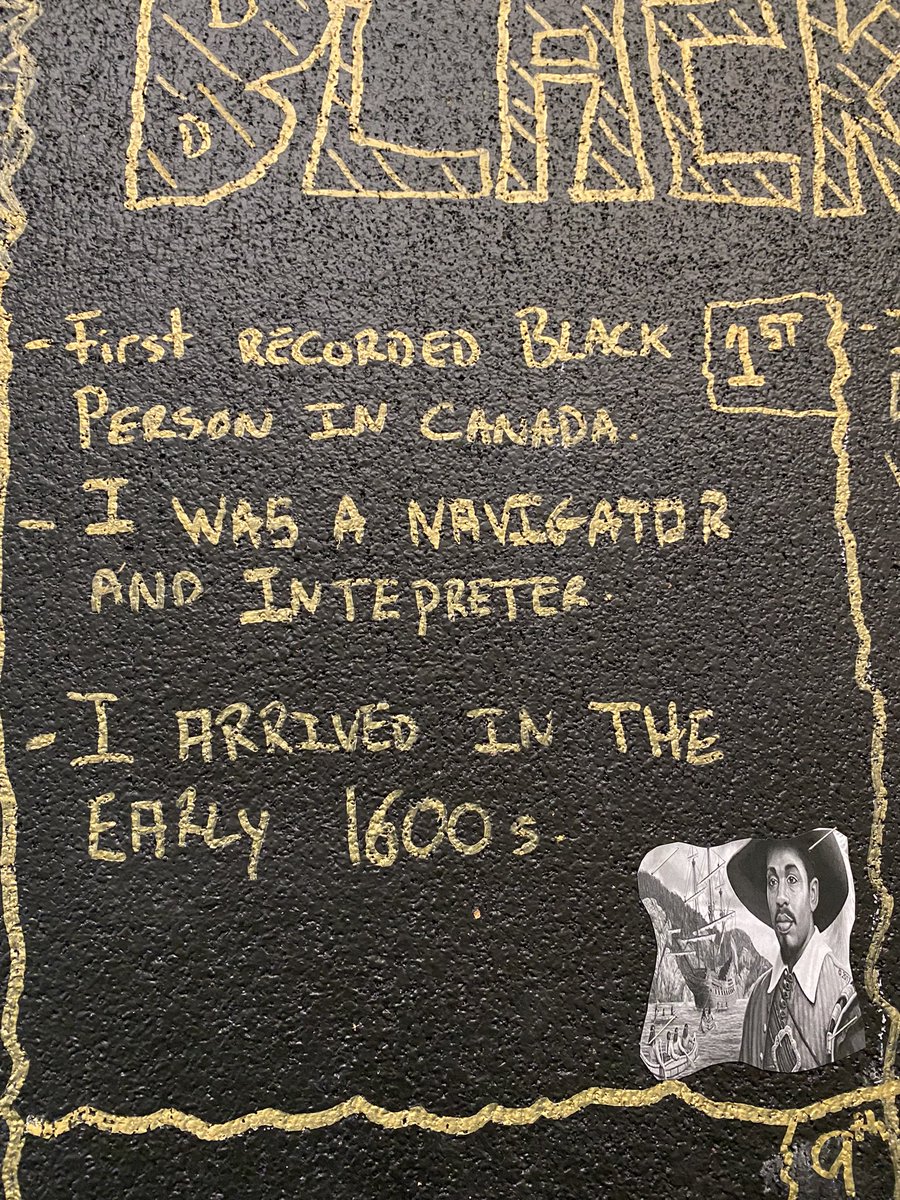 BLACK
- First RECORDED BLACK
PERSON IN CANADA.
1ST
- I WAS A NAVIGATOR
AND INTEPRETER.
- I ARRIVED IN THE
EARLY 1600s.
9th